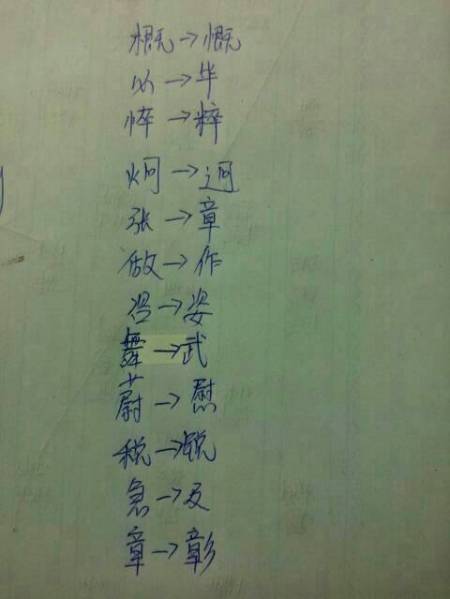 概→慨
必→毕
悴→粹
炯→迥
张→章
做→作
→姿
舞→武
蔚→慰
税→锐
急→及
章→彰